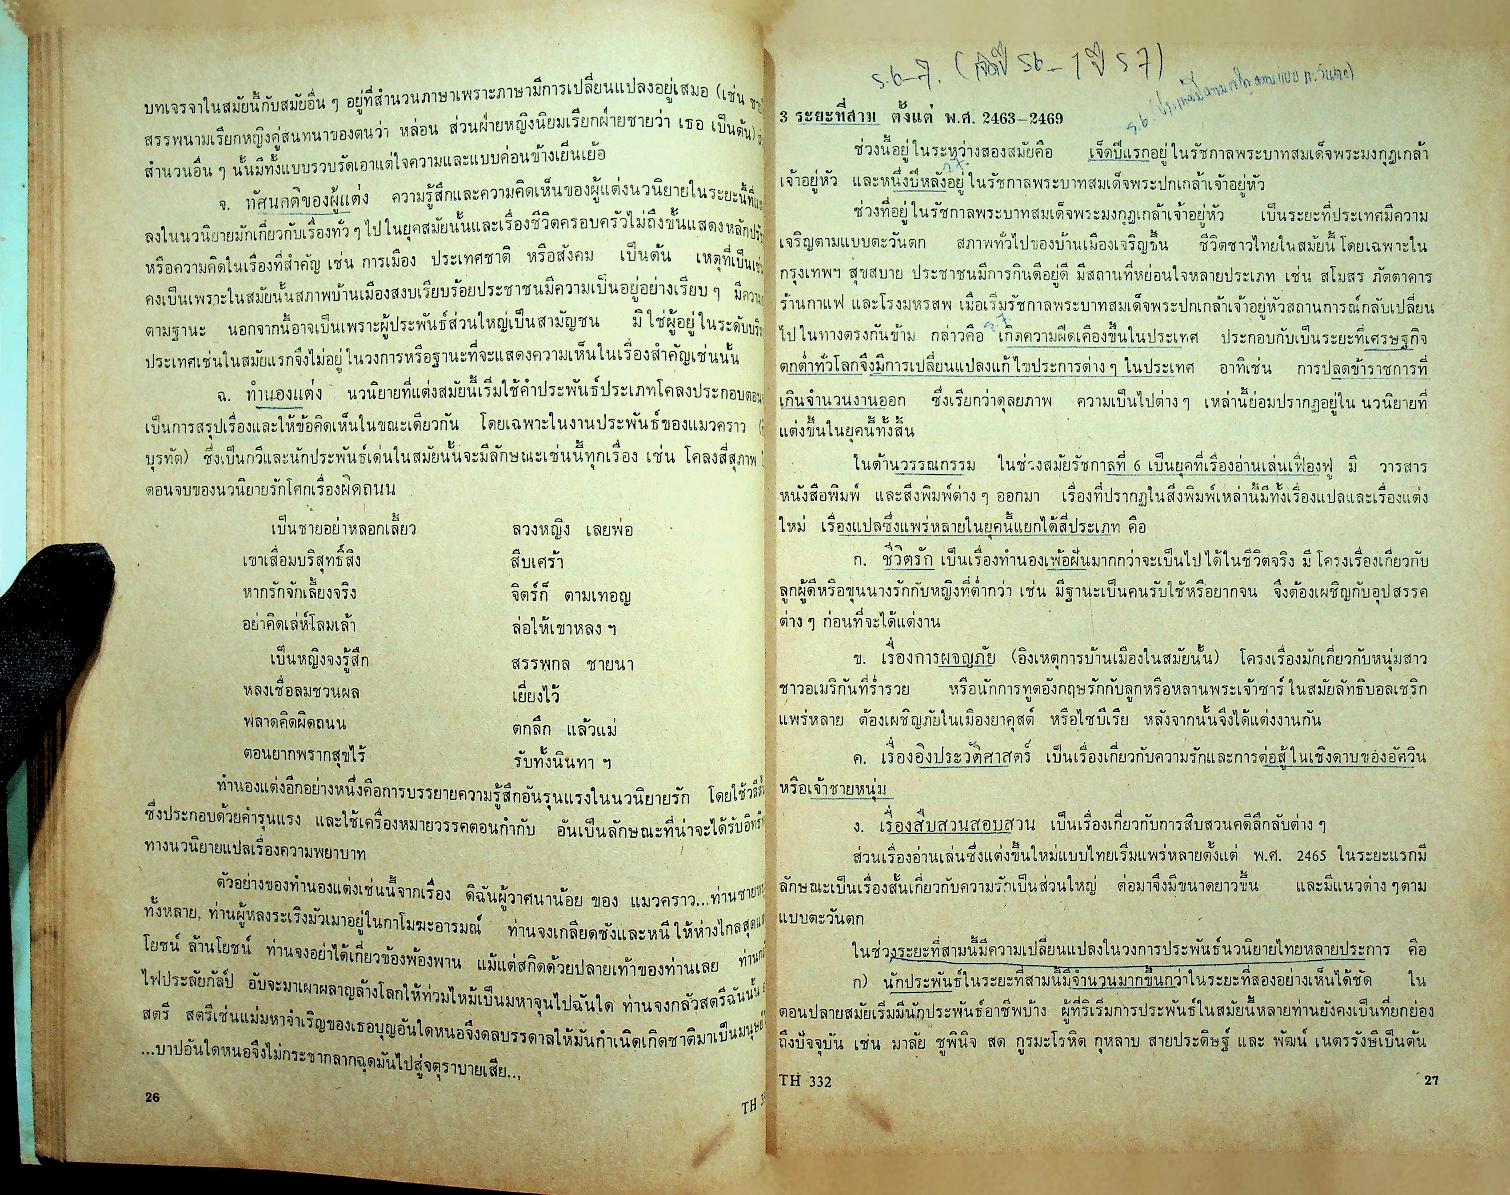 บทเจรจาในสมัยนี้กับสมัยอื่น ๆ อยู่ที่สำนวนภาษาเพราะภาษามีการเปลี่ยนแปลงอยู่เสมอ (เช่น
สรรพนามเรียกหญิงคู่สนทนาของตนว่า หล่อน ส่วนฝ่ายหญิงนิยมเรียกฝ่ายชายว่า เธอ เป็นต้น)
สำนวนอื่น ๆ นั้นมีทั้งแบบรวบรัดเอาแต่ใจความและแบบค่อนข้างเยิ่นเย้อ
จ. ทัศนคติของผู้แต่ง ความรู้สึกและความคิดเห็นของผู้แต่งนวนิยายในระยะนี้
ลงในนวนิยายมักเกี่ยวกับเรื่องทั่ว ๆ ไป ในยุคสมัยนั้นและเรื่องชีวิตครอบครัวไม่ถึงขั้นแสดงหลัก
หรือความคิดในเรื่องที่สำคัญ เช่น การเมือง ประเทศชาติ หรือสังคม เป็นต้น เหตุที่เป็น
คงเป็นเพราะในสมัยนั้นสภาพบ้านเมืองสงบเรียบร้อยประชาชนมีความเป็นอยู่อย่างเรียบ ๆ มี
ตามฐานะ นอกจากนี้อาจเป็นเพราะผู้ประพันธ์ส่วนใหญ่เป็นสามัญชน มิใช่ผู้อยู่ในระดับ
ประเทศเช่นในสมัยแรกจึงไม่อยู่ในวงการหรือฐานะที่จะแสดงความเห็นในเรื่องสำคัญเช่นนั้น
ฉ. ทำนองแต่ง นวนิยายที่แต่งสมัยนี้เริ่มใช้คำประพันธ์ประเภทโคลงประกอบตอน
เป็นการสรุปเรื่องและให้ข้อคิดเห็นในขณะเดียวกัน โดยเฉพาะในงานประพันธ์ของแมวคราว
บุรทัต) ซึ่งเป็นกวีและนักประพันธ์เด่นในสมัยนั้นจะมีลักษณะเช่นนี้ทุกเรื่อง เช่น โคลงสี่สุภาพ
ตอนจบของนวนิยายรักโศกเรื่องผิดถนน
เป็นชายอย่าหลอกเลี้ยว ลวงหญิง เลยพ่อ
เขาเสื่อมบริสุทธิ์สิง สืบเศร้า
หากรักจักเลี้ยงจริง จิตร์ก็ ตามเทอญ
อย่าคิดเล่ห์โลมเล้า ล่อให้เขาหลง ฯ
เป็นหญิงจงรู้สึก สรรพกล ชายนา
หลงเชื่อลมชวนผล เยี่ยงไว้
พลาดคิดผิดถนน ตกลึก แล้วแม่
ตอนยากพรากสุขไร้ รับทั้งนินทา ฯ
ทำนองแต่งอีกอย่างหนึ่งคือการบรรยายความรู้สึกอันรุนแรงในนวนิยายรัก โดยใช้
ซึ่งประกอบด้วยคำรุนแรง และใช้เครื่องหมายวรรคตอนกำกับ อันเป็นลักษณะที่น่าจะได้รับ
ทางนวนิยายแปลเรื่องความพยาบาท
ตัวอย่างของทำนองแต่งเช่นนี้จากเรื่อง ดิฉันผู้วาศนาน้อย ของ แมวคราว...ท่านชาย
ทั้งหลาย, ท่านผู้หลงระเริงมัวเมาอยู่ในกาโมฆะอารมณ์ ท่านจงเกลียดชังและหนีให้ห่างไกลสุด
โยชน์ ล้านโยชน์ ท่านจงอย่าได้เกี่ยวข้องพ้องพาน แม้แต่สกิดด้วยปลายเท้าของท่านเลย
ไฟประลัยกัลป์ อับจะมาเผาผลาญล้างโลกให้ท่วมไหม้เป็นมหาจุนไปฉันใด ท่านจงกลัวสตรีฉันนั้น
สตรี สตรีเช่นแม่มหาจำเริญของเธอบุญอันใดหนอจึงดลบรรดาลให้มันกำเนิดเกิดชาติมาเป็นมนุษย์
...บาปอันใดหนอจึงไม่กระชากลากฉุดมันไปสู่จตุราบายเสีย...
26
TH
ร.6-7. (เจ็ดปี ร6 - 1 ปี ร7)
3 ระยะที่สาม ตั้งแต่ พ.ศ. 2463-2469
ช่วงนี้อยู่ในระหว่างสองสมัยคือ เจ็ดปีแรกอยู่ในรัชกาลพระบาทสมเด็จพระมงกุฎเกล้า
เจ้าอยู่หัว และหนึ่งปีหลังอยู่ในรัชกาลพระบาทสมเด็จพระปกเกล้าเจ้าอยู่หัว
ช่วงที่อยู่ในรัชกาลพระบาทสมเด็จพระมงกุฎเกล้าเจ้าอยู่หัว เป็นระยะที่ประเทศมีความ
เจริญตามแบบตะวันตก สภาพทั่วไปของบ้านเมืองเจริญขึ้น ชีวิตชาวไทยในสมัยนี้โดยเฉพาะใน
กรุงเทพฯ สุขสบาย ประชาชนมีการกินดีอยู่ดี มีสถานที่หย่อนใจหลายประเภท เช่น สโมสร ภัตตาคาร
ร้านกาแฟ และโรงมหรสพ เมื่อเริ่มรัชกาลพระบาทสมเด็จพระปกเกล้าเจ้าอยู่หัวสถานการณ์กลับเปลี่ยน
ไปในทางตรงกันข้าม กล่าวคือ เกิดความฝืดเคืองขึ้นในประเทศ ประกอบกับเป็นระยะที่เศรษฐกิจ
ตกต่ำทั่วโลกจึงมีการเปลี่ยนแปลงแก้ไขประการต่าง ๆ ในประเทศ อาทิเช่น การปลดข้าราชการที่
เกินจำนวนงานออก ซึ่งเรียกว่าดุลยภาพ ความเป็นไปต่าง ๆ เหล่านี้ย่อมปรากฏอยู่ใน นวนิยายที่
แต่งขึ้นในยุคนี้ทั้งสิ้น
ในด้านวรรณกรรม ในช่วงสมัยรัชกาลที่ 6 เป็นยุคที่เรื่องอ่านเล่นเฟื่องฟู มี วารสาร
หนังสือพิมพ์ และสิ่งพิมพ์ต่าง ๆ ออกมา เรื่องที่ปรากฏในสิ่งพิมพ์เหล่านี้มีทั้งเรื่องแปลและเรื่องแต่ง
ใหม่ เรื่องแปลซึ่งแพร่หลายในยุคนี้แยกได้สี่ประเภท คือ
ก. ชีวิตรัก เป็นเรื่องทำนองเพ้อฝันมากกว่าจะเป็นไปได้ในชีวิตจริง มีโครงเรื่องเกี่ยวกับ
ลูกผู้ดีหรือขุนนางรักกับหญิงที่ต่ำกว่า เช่น มีฐานะเป็นคนรับใช้หรือยากจน จึงต้องเผชิญกับอุปสรรค
ต่าง ๆ ก่อนที่จะได้แต่งงาน
ข. เรื่องการผจญภัย (อิงเหตุการบ้านเมืองในสมัยนั้น) โครงเรื่องมักเกี่ยวกับหนุ่มสาว
ชาวอเมริกันที่ร่ำรวย หรือนักการทูตอังกฤษรักกับลูกหรือหลานพระเจ้าซาร์ในสมัยลัทธิบอลเชริก
แพร่หลาย ต้องเผชิญภัยในเมืองยาคุสต์ หรือไซบีเรีย หลังจากนั้นจึงได้แต่งงานกัน
ค. เรื่องอิงประวัติศาสตร์ เป็นเรื่องเกี่ยวกับความรักและการต่อสู้ในเชิงดาบของอัศวิน
หรือเจ้าชายหนุ่ม
ง. เรื่องสืบสวนสอบสวน เป็นเรื่องเกี่ยวกับการสืบสวนคดีลึกลับต่าง ๆ
ส่วนเรื่องอ่านเล่นซึ่งแต่งขึ้นใหม่แบบไทยเริ่มแพร่หลายตั้งแต่ พ.ศ. 2465 ในระยะแรกมี
ลักษณะเป็นเรื่องสั้นเกี่ยวกับความรักเป็นส่วนใหญ่ ต่อมาจึงมีขนาดยาวขึ้น และมีแนวต่าง ๆ ตาม
แบบตะวันตก
ในช่วงระยะที่สามนี้มีความเปลี่ยนแปลงในวงการประพันธ์นวนิยายไทยหลายประการ คือ
ก) นักประพันธ์ในระยะที่สามนี้มีจำนวนมากขึ้นกว่าในระยะที่สองอย่างเห็นได้ชัด ใน
ตอนปลายสมัยเริ่มมีนักประพันธ์อาชีพบ้าง ผู้ที่ริเริ่มการประพันธ์ในสมัยนี้หลายท่านยังคงเป็นที่ยกย่อง
ถึงปัจจุบัน เช่น มาลัย ชูพินิจ สด กูรมะโรหิต กุหลาบ สายประดิษฐ์ และ พัฒน์ เนตรรังษีเป็นต้น
TH 332
27